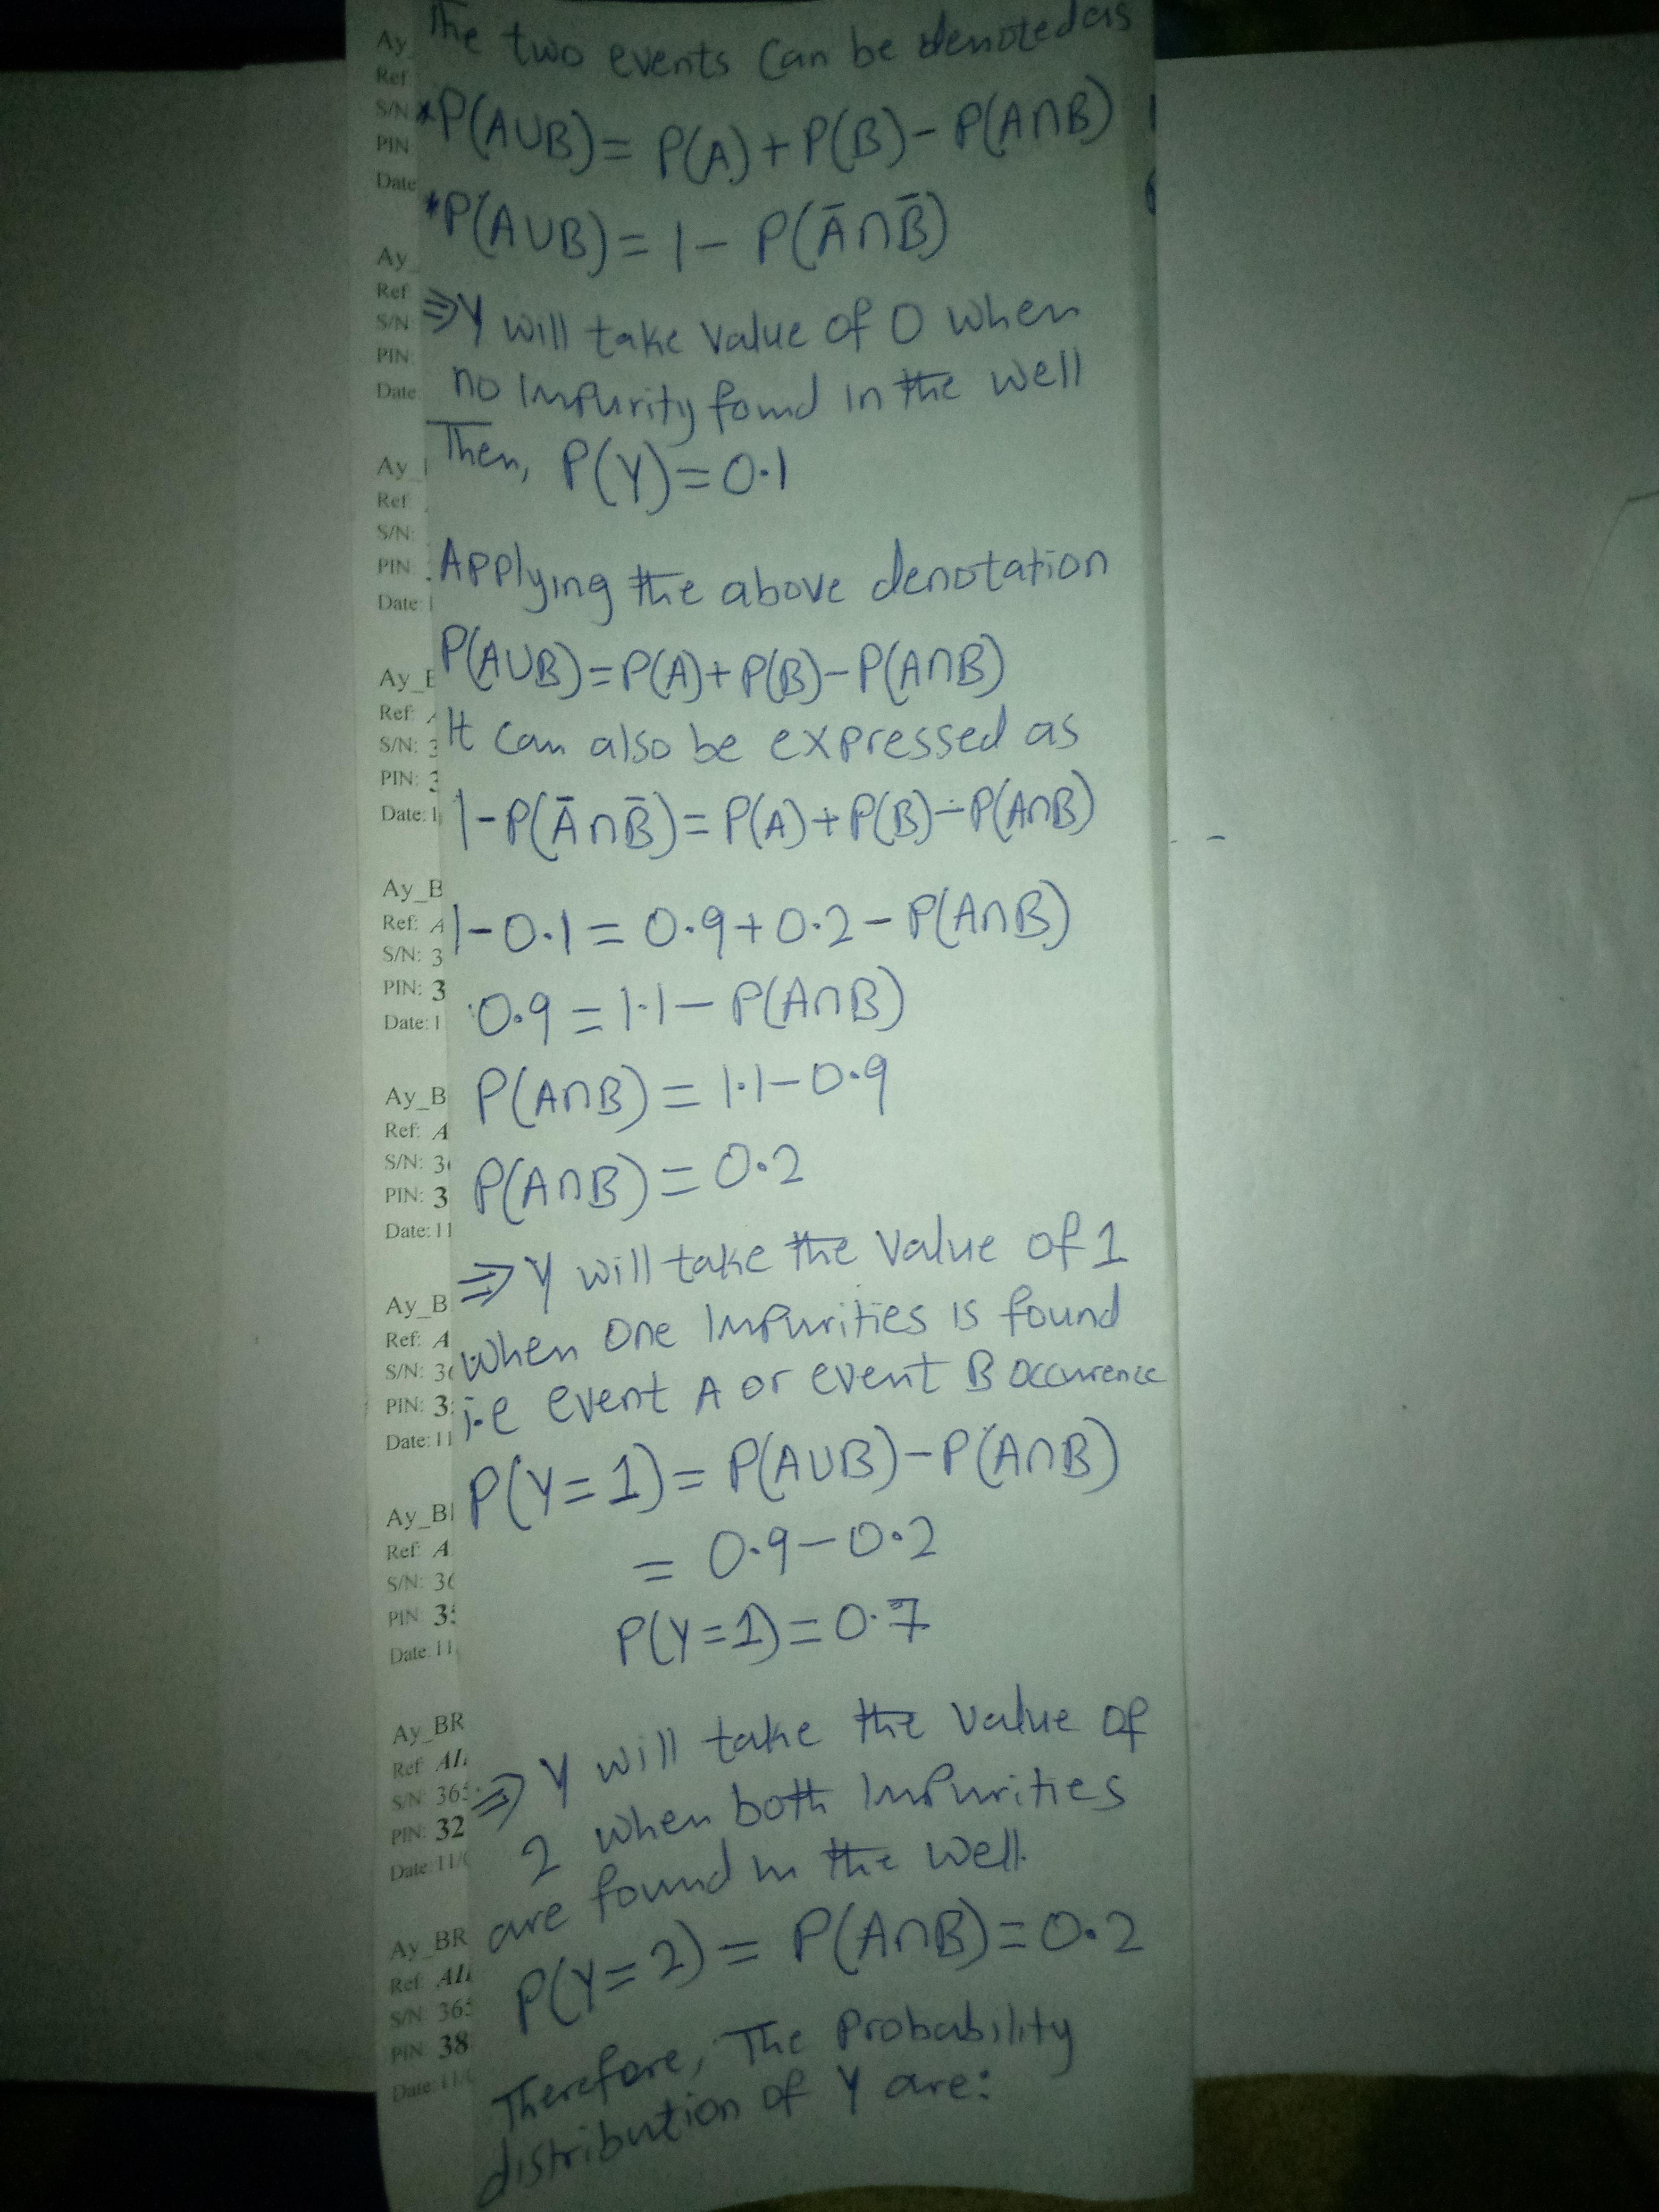 The two events can be denoted as
*P(A∪B) = P(A) + P(B) - P(A∩B)
*P(A∪B) = 1 - P(Ā∩B̄)
⇒ Y will take value of 0 when
no Impurity found in the well
Then, P(Y) = 0.1
Applying the above denotation
P(A∪B) = P(A) + P(B) - P(A∩B)
It can also be expressed as
1 - P(Ā∩B̄) = P(A) + P(B) - P(A∩B)
1 - 0.1 = 0.9 + 0.2 - P(A∩B)
0.9 = 1.1 - P(A∩B)
P(A∩B) = 1.1 - 0.9
P(A∩B) = 0.2
⇒ Y will take the value of 1
when one Impurities is found
i.e event A or event B occurence
P(Y=1) = P(A∪B) - P(A∩B)
= 0.9 - 0.2
P(Y=1) = 0.7
⇒ Y will take the value of
2 when both Impurities
are found in the well.
P(Y=2) = P(A∩B) = 0.2
Therefore, The Probability
distribution of Y are:
Ay
Ref
S/N
PIN
Date
Ay
Ref
S/N
PIN:
Date
Ay
Ref
S/N:
PIN
Date:
Ay_B
Ref:
S/N: 3
PIN: 3
Date: 1
Ay_B
Ref: A
S/N: 3
PIN: 3
Date: 1
Ay_B
Ref: A
S/N: 36
PIN: 3
Date: 11
Ay_B
Ref: A
S/N: 36
PIN: 3
Date: 11
Ay_BR
Ref: A
S/N: 36
PIN: 3
Date: 11
Ay_BR
Ref: AL
S/N: 365
PIN: 32
Date: 11/
Ay_BR
Ref: AL
S/N: 365
PIN: 38
Date: 11/